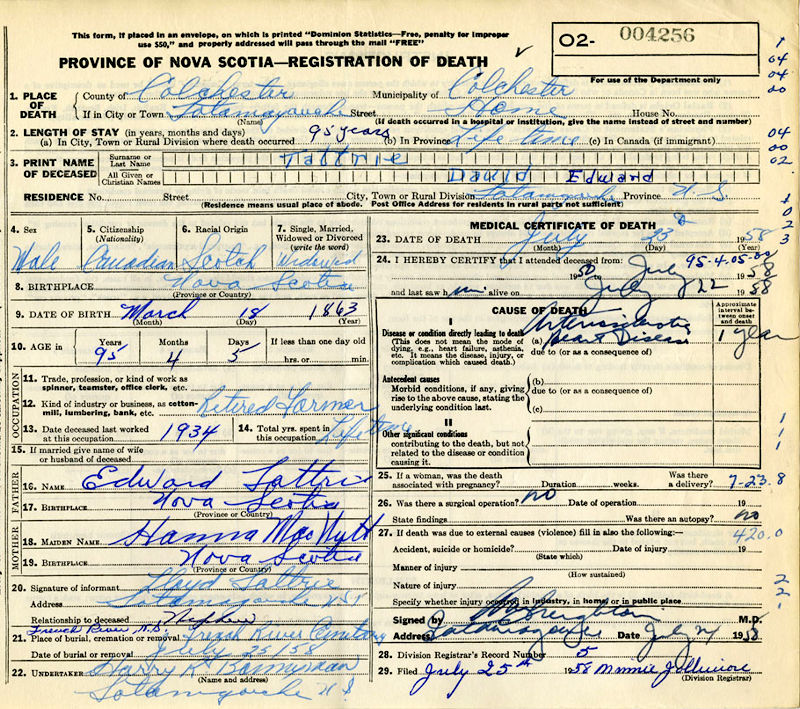 This form, if placed in an envelope, on which is printed "Dominion Statistics—Free, penalty for improper
use $50," and properly addressed will pass through the mail "FREE"
PROVINCE OF NOVA SCOTIA—REGISTRATION OF DEATH
O2- 004256
For use of the Department only
1. PLACE OF DEATH
County of Colchester Municipality of Colchester
If in City or Town Tatamagouche Street Home House No.
(Name) (If death occurred in a hospital or institution, give the name instead of street and number)
2. LENGTH OF STAY (in years, months and days)
(a) In City, Town or Rural Division where death occurred 95 years (b) In Province Life time (c) In Canada (if immigrant)
3. PRINT NAME OF DECEASED
Surname or Last Name Tattrie
All Given or Christian Names David Edward
RESIDENCE No. Street City, Town or Rural Division Tatamagouche Province N.S.
(Residence means usual place of abode. Post Office Address for residents in rural parts not sufficient)
4. Sex
Male
5. Citizenship (Nationality)
Canadian
6. Racial Origin
Scotch
7. Single, Married, Widowed or Divorced (write the word)
Widowed
8. BIRTHPLACE Nova Scotia
(Province or Country)
9. DATE OF BIRTH March 18 1863
(Month) (Day) (Year)
10. AGE in
Years 95
Months 4
Days 5
If less than one day old
hrs. or min.
OCCUPATION
11. Trade, profession, or kind of work as
spinner, teamster, office clerk, etc.
12. Kind of industry or business, as cotton-
mill, lumbering, bank, etc. Retired Farmer
13. Date deceased last worked
at this occupation 1934
14. Total yrs. spent in
this occupation Lifetime
15. If married give name of wife
or husband of deceased
FATHER
16. NAME Edward Tattrie
17. BIRTHPLACE Nova Scotia
(Province or Country)
MOTHER
18. MAIDEN NAME Hanna
19. BIRTHPLACE Nova Scotia
(Province or Country)
20. Signature of informant Lloyd Tattrie
Address Tatamagouche N.S.
Relationship to deceased Nephew
French River, N.S.
21. Place of burial, cremation or removal French River Cemetery
Date of burial or removal July 25/58
22. UNDERTAKER Harry
(Name and address)
Tatamagouche N S
MEDICAL CERTIFICATE OF DEATH
23. DATE OF DEATH July 23 1958
(Month) (Day) (Year)
24. I HEREBY CERTIFY that I attended deceased from: 95-4.05-
1950 July 1958
and last saw him alive on July 22 1958
CAUSE OF DEATH
Approximate interval between onset and death
I
Disease or condition directly leading to death
(This does not mean the mode of
dying, e.g., heart failure, asthenia,
etc. It means the disease, injury, or
complication which caused death.)
(a) Arteriosclerotic Heart Disease 1 year
due to (or as a consequence of)
Antecedent causes
Morbid conditions, if any, giving
rise to the above cause, stating the
underlying condition last.
(b)
due to (or as a consequence of)
(c)
II
Other significant conditions
contributing to the death, but not
related to the disease or condition
causing it.
25. If a woman, was the death
associated with pregnancy? Duration weeks. Was there a delivery?
7-23.8
26. Was there a surgical operation? no Date of operation 19
State findings Was there an autopsy? no
27. If death was due to external causes (violence) fill in also the following:—
420.0
Accident, suicide or homicide? Date of injury 19
(State which)
Manner of injury
(How sustained)
Nature of injury
Specify whether injury occurred in industry, in home, or in public place
Signed by Creighton M.D.
Address Tatamagouche Date July 24 1958
28. Division Registrar's Record Number 5
29. Filed July 25th 1958 Minnie
(Division Registrar)